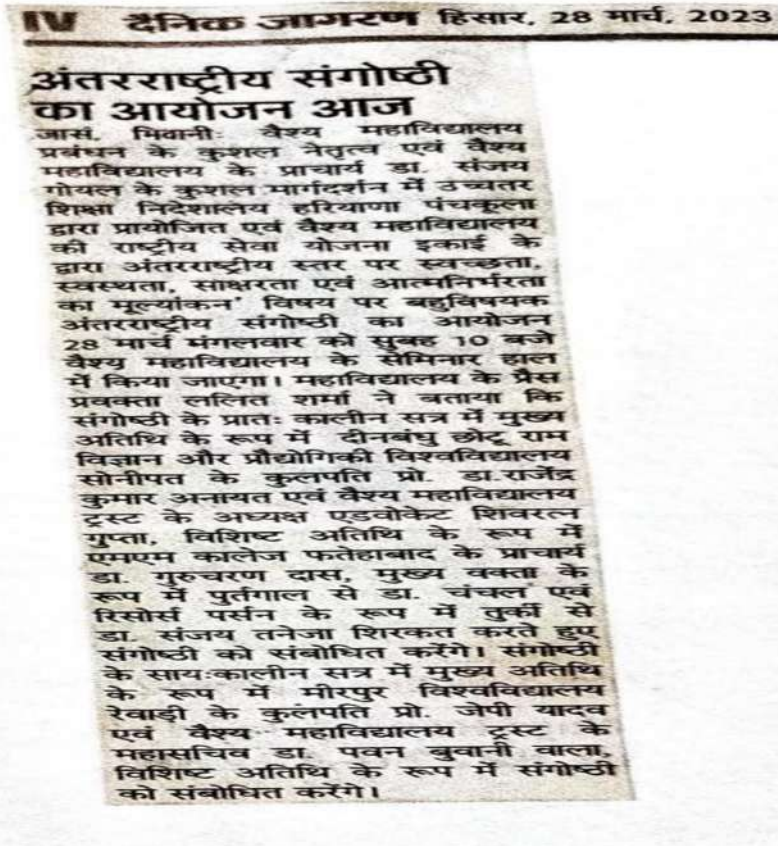 IV दैनिक जागरण हिसार, 28 मार्च, 2023
अंतरराष्ट्रीय संगोष्ठी
का आयोजन आज
जासं, भिवानीः वैश्य महाविद्यालय
प्रबंधन के कुशल नेतृत्व एवं वैश्य
महाविद्यालय के प्राचार्य डा. संजय
गोयल के कुशल मार्गदर्शन में उच्चतर
शिक्षा निदेशालय हरियाणा पंचकूला
द्वारा प्रायोजित एवं वैश्य महाविद्यालय
की राष्ट्रीय सेवा योजना इकाई के
द्वारा अंतरराष्ट्रीय स्तर पर स्वच्छता,
स्वस्थता, साक्षरता एवं आत्मनिर्भरता
का मूल्यांकन' विषय पर बहुविषयक
अंतरराष्ट्रीय संगोष्ठी का आयोजन
28 मार्च मंगलवार को सुबह 10 बजे
वैश्य महाविद्यालय के सेमिनार हाल
में किया जाएगा। महाविद्यालय के प्रैस
प्रवक्ता ललित शर्मा ने बताया कि
संगोष्ठी के प्रातः कालीन सत्र में मुख्य
अतिथि के रूप में दीनबंधु छोटू राम
विज्ञान और प्रौद्योगिकी विश्वविद्यालय
सोनीपत के कुलपति प्रो. डा.राजेंद्र
कुमार अनायत एवं वैश्य महाविद्यालय
ट्रस्ट के अध्यक्ष एडवोकेट शिवरत्न
गुप्ता, विशिष्ट अतिथि के रूप में
एमएम कालेज फतेहाबाद के प्राचार्य
डा. गुरुचरण दास, मुख्य वक्ता के
रूप में पुर्तगाल से डा. चंचल एवं
रिसोर्स पर्सन के रूप में तुर्की से
डा. संजय तनेजा शिरकत करते हुए
संगोष्ठी को संबोधित करेंगे। संगोष्ठी
के सायःकालीन सत्र में मुख्य अतिथि
के रूप में मीरपुर विश्वविद्यालय
रेवाड़ी के कुलपति प्रो. जेपी यादव
एवं वैश्य महाविद्यालय ट्रस्ट के
महासचिव डा. पवन बुवानी वाला,
विशिष्ट अतिथि के रूप में संगोष्ठी
को संबोधित करेंगे।